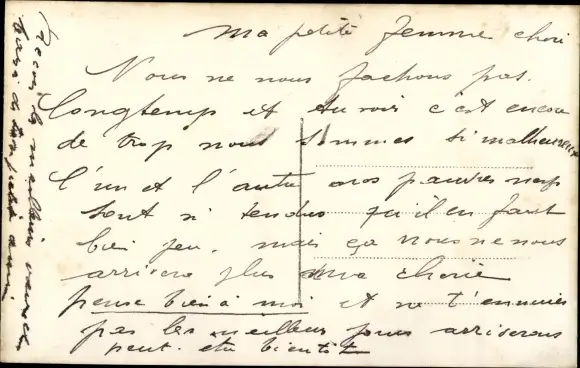 ma petite femme cheri
Nous ne nous fachons pas.
longtemp et tu vois c'est encore
de trop nous sommes si malheureux
l'un et l'autre nos pauvres nerfs
sont si tendus qu'il en faut
bien peu. mais ça nous ne nous
arrivera plus ma cherie
pense bien à moi et ne t'ennuies
pas les meilleurs jours arriverons
peut-etre bientôt
Recois les meilleurs
baisers de ton petit ami.